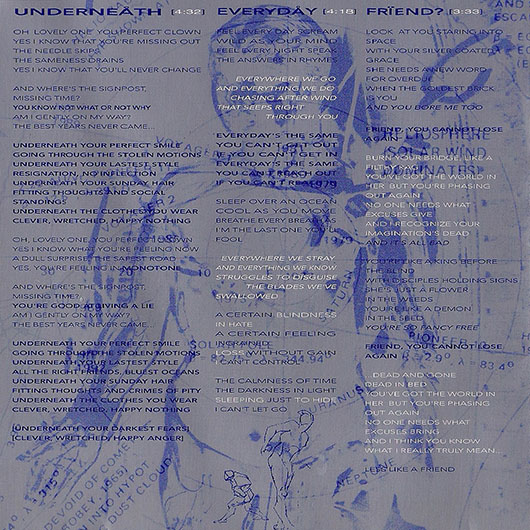 UNDERNEATH [4:32]
OH, LOVELY ONE, YOU PERFECT CLOWN
YES I KNOW THAT YOU'RE MISSING OUT
THE NEEDLE SKIPS
THE SAMENESS DRAINS
YES I KNOW THAT YOU'LL NEVER CHANGE
AND WHERE'S THE SIGNPOST,
MISSING TIME?
YOU KNOW NOT WHAT OR NOT WHY
AM I GENTLY ON MY WAY?
THE BEST YEARS NEVER CAME...
UNDERNEATH YOUR PERFECT SMILE
GOING THROUGH THE STOLEN MOTIONS
UNDERNEATH YOUR LATEST STYLE
RESIGNATION, NO INFLECTION
UNDERNEATH YOUR SUNDAY HAIR
FITTING THOUGHTS AND SOCIAL
STANDINGS
UNDERNEATH THE CLOTHES YOU WEAR
CLEVER, WRETCHED, HAPPY NOTHING
OH, LOVELY ONE, YOU PERFECT CLOWN
YES I KNOW WHAT YOU'RE FEELING NOW
A DULL SURPRISE, IT SAPS THE ROAD
YES, YOU'RE FEELING IN MONOTONE
AND WHERE'S THE SIGNPOST,
MISSING TIME?
YOU'RE GOOD AT LIVING A LIE
AM I GENTLY ON MY WAY?
THE BEST YEARS NEVER CAME
UNDERNEATH YOUR PERFECT SMILE
GOING THROUGH THE STOLEN MOTIONS
UNDERNEATH YOUR LATEST STYLE
ALL THE RIGHT FRIENDS, BLUEST OCEANS
UNDERNEATH YOUR SUNDAY HAIR
FITTING THOUGHTS AND CRIMES OF PITY
UNDERNEATH THE CLOTHES YOU WEAR
CLEVER, WRETCHED, HAPPY NOTHING
[UNDERNEATH YOUR DARKEST FEARS]
[CLEVER, WRETCHED, HAPPY ANGER]
EVERYDAY [4:18]
FEEL EVERY DAY SCREAM
WILD AS YOUR MIND
FEEL EVERY NIGHT SPEAK
THE ANSWER IN RHYMES
EVERYWHERE WE GO
AND EVERYTHING WE DO
CHASING AFTER WIND
THAT SEEPS RIGHT
THROUGH YOU
EVERYDAY'S THE SAME
YOU CAN'T GET OUT
IF YOU CAN'T GET IN
EVERYDAY'S THE SAME
YOU CAN'T REACH OUT
IF YOU CAN'T
SLEEP OVER AN OCEAN
COOL AS YOU MOVE
BREATHE EVERY BREATH AS
I'M THE LAST ONE YOU
FOOL
EVERYWHERE WE STRAY
AND EVERYTHING WE KNOW
STRUGGLES TO DISGUISE
THE BLADES WE'VE
SWALLOWED
A CERTAIN BLINDNESS
IN HATE
A CERTAIN FEELING
LOSS WITHOUT GAIN
CAN'T CONTROL
THE CALMNESS OF TIME
THE DARKNESS IN LIGHT
SLEEPING JUST TO HIDE
I CAN'T LET GO
FRIEND? [3:33]
LOOK AT YOU STARING INTO
SPACE
WITH YOUR SILVER COATED
GRACE
SHE NEEDS A NEW WORD
FOR OVERDO
WHEN THE GOLDEST BRICK
IS YOU
AND YOU BORE ME TOO
FRIEND, YOU CANNOT LOSE
AGAIN
BURN YOUR BRIDGE, LIKE A
YOU'VE GOT THE WORLD IN
HER BUT YOU'RE PHASING
OUT AGAIN
NO ONE NEEDS WHAT
EXCUSES GIVE
AND I RECOGNIZE YOUR
IMAGINATION'S DEAD
AND IT'S ALL BAD
YOU'RE LIKE A KING BEFORE
THE BLIND
WITH DISCIPLES HOLDING SIGNS
SHE'S JUST A FLOWER
IN THE WEEDS
YOU'RE LIKE A DEMON
IN THE SEED
YOU'RE SO FANCY FREE
FRIEND, YOU CANNOT LOSE
AGAIN
DEAD AND GONE
DEAD IN BED
YOU'VE GOT THE WORLD IN
HER BUT YOU'RE PHASING
OUT AGAIN
NO ONE NEEDS WHAT
EXCUSES BRING
AND I THINK YOU KNOW
WHAT I REALLY TRULY MEAN...
LESS LIKE A FRIEND
HELIOSPHERE
(SOLAR WIND
DOMINATES)
URANUS
NEPTUNE
DEVOID OF COM
INTO HYPOT
DUST CLOUD